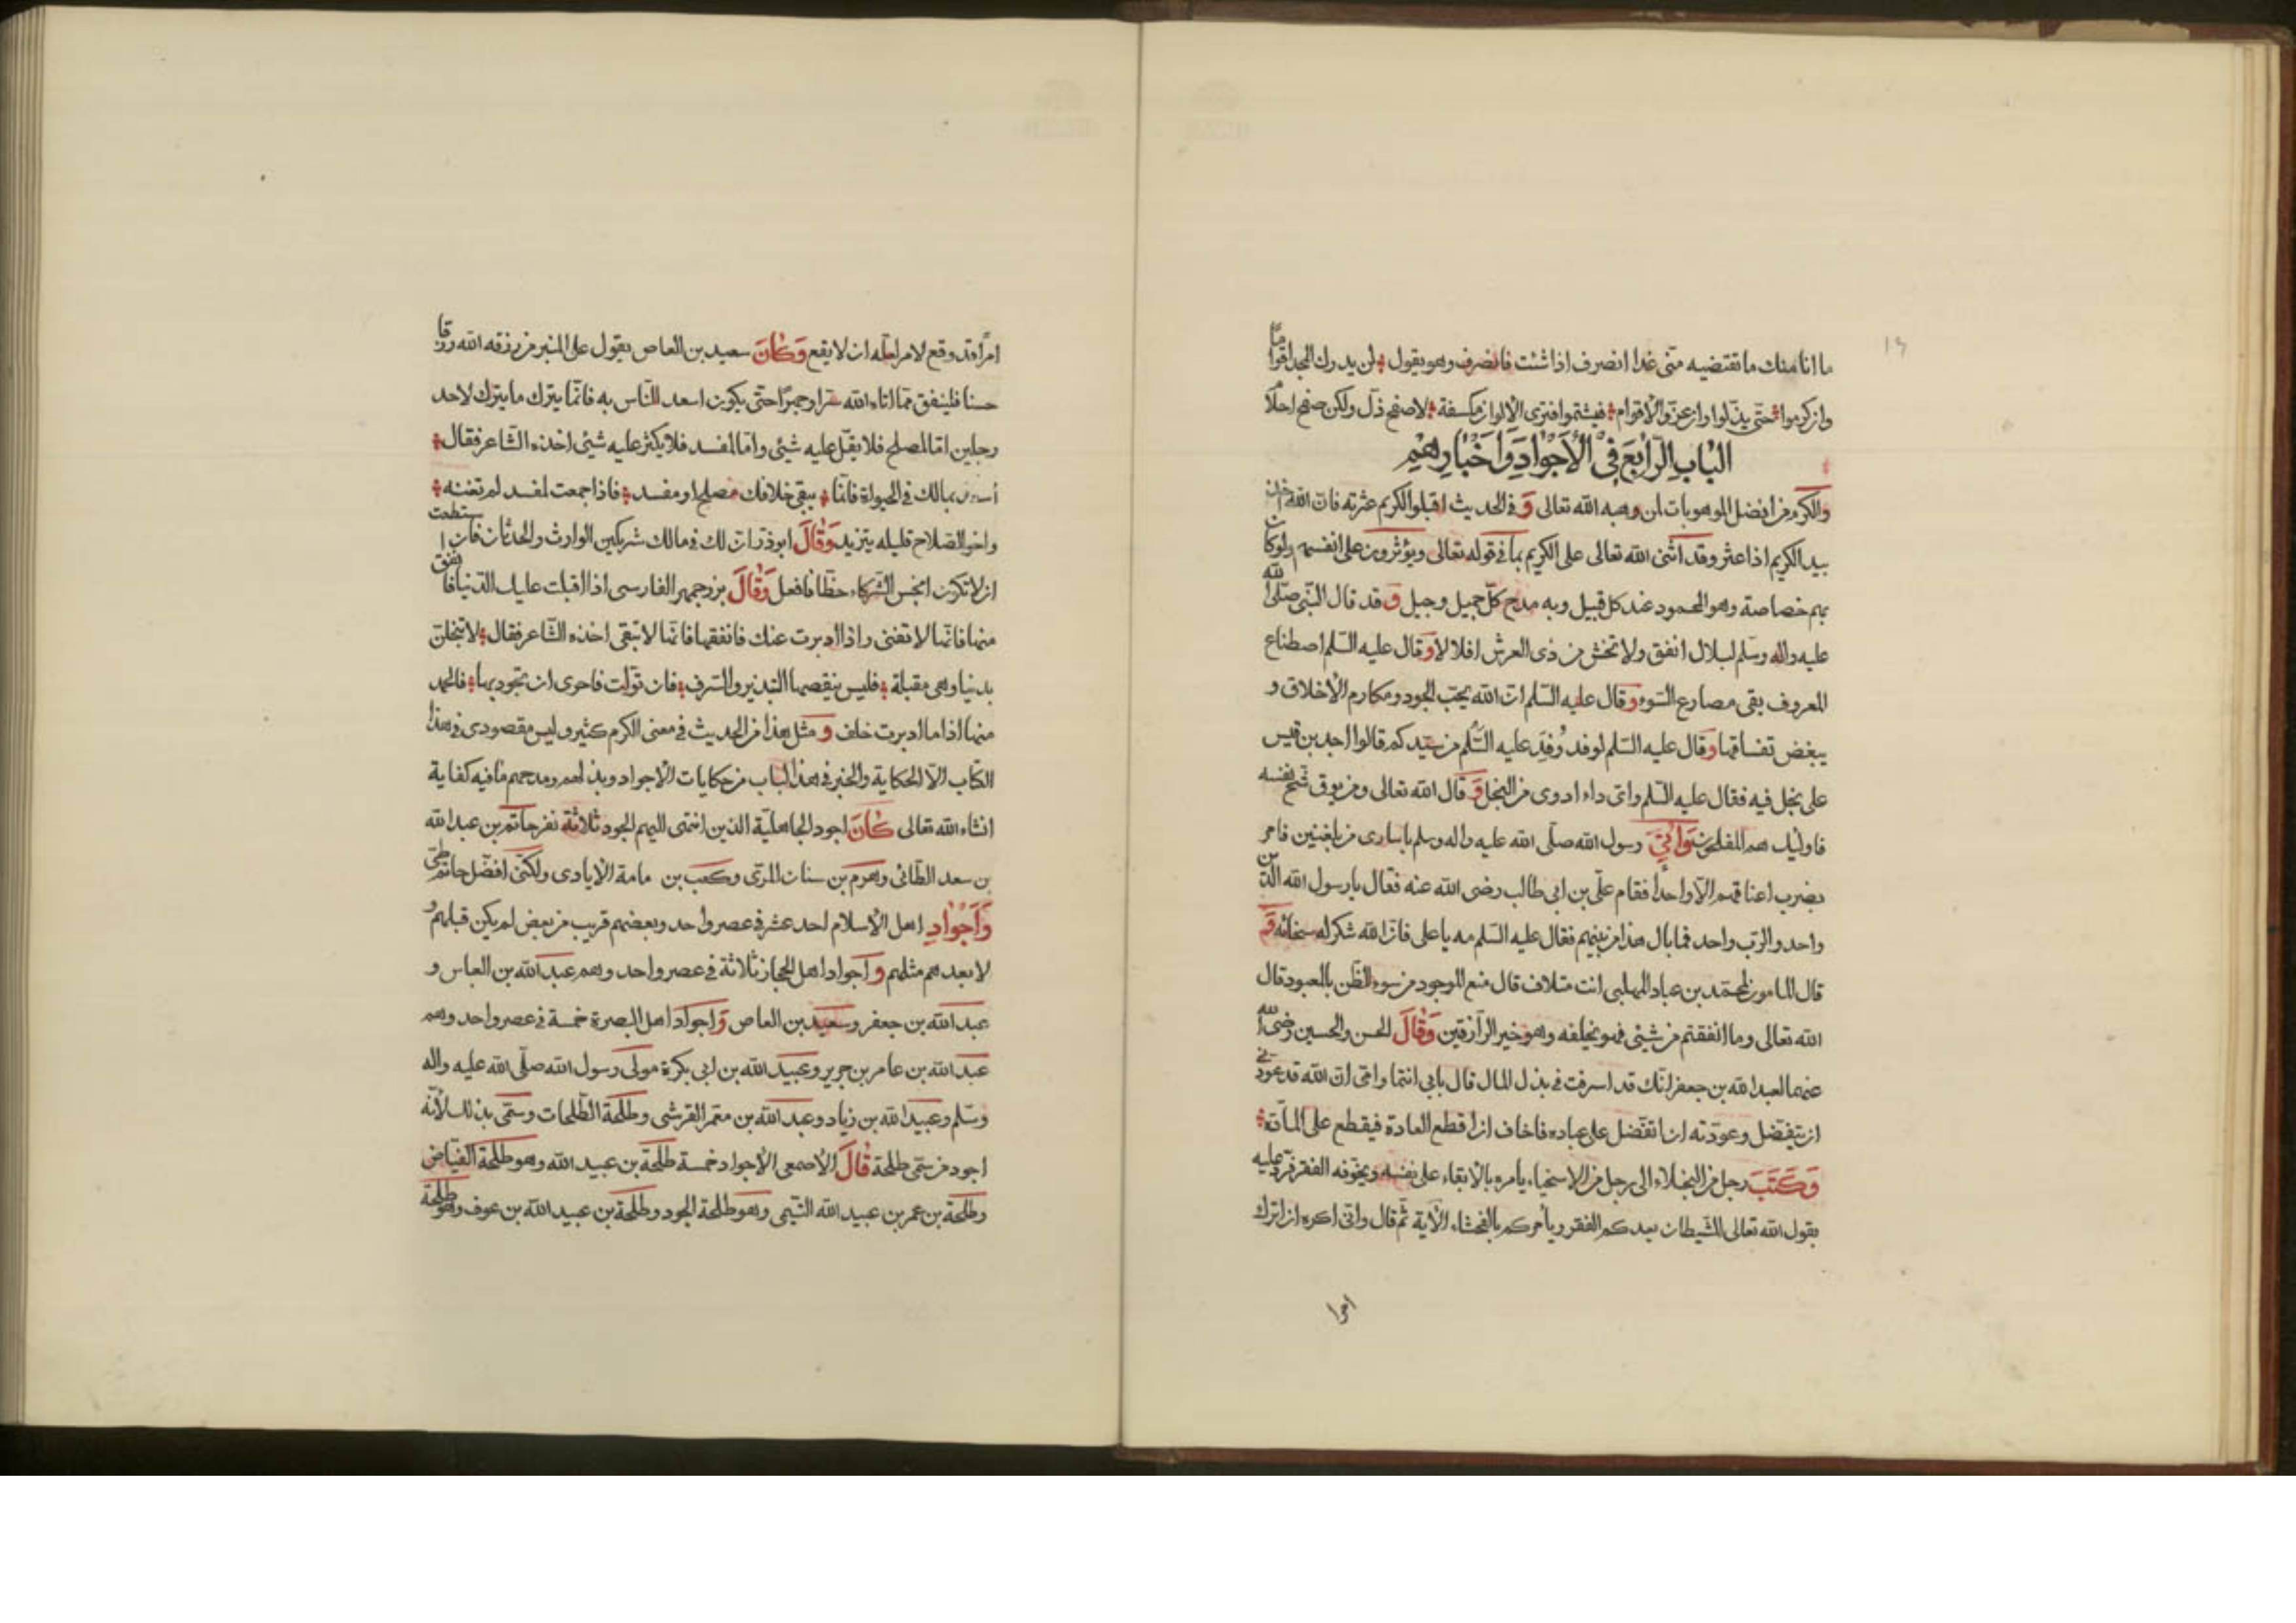 ١٦
ما انا منك ما تقتضيه منّى غدا انصرف اذا شئت فانصرف وهو يقول لن يدرك المجد اقواما
وان كرموا حتّى يذلّوا وان عزّوا لاقوام فيشتموا فترى الالوان مكسفة لا صفح ذلّ ولكن صفح احلام
الباب الرّابع فى الاجواد واخبارهم
والكرم من افضل الموهوبات لمن وهبه الله تعالى و فى الحديث اقيلوا الكريم عثرته فان الله اخذ
بيد الكريم اذا عثر وقد اثنى الله تعالى على الكريم بما فى قوله تعالى ويؤثرون على انفسهم ولو كان
بهم خصاصة وهو المحمود عند كل قبيل وبه مدح كلّ جميل وجبل و قد قال النّبى صلّى الله
عليه واله وسلم لبلال انفق ولا تخش من ذى العرش اقلالا وقال عليه السّلم اصطناع
المعروف يقى مصارع السّوء وقال عليه السّلم انّ الله يحبّ الجود ومكارم الاخلاق و
يبغض تفسافها وقال عليه السّلم لوفد وُفِدَ عليه السّلم من سيّدكم قالوا احد بن قيس
على بخل فيه فقال عليه السّلم واىّ داء ادوى من البخل و قال الله تعالى ومن يوق شح نفسه
فاوليك هم المفلحون واُتِىَ رسول الله صلّى الله عليه واله وسلم باسارى من بلغنبن فامر
بضرب اعناقهم الّا واحداً فقام علىّ بن ابى طالب رضى الله عنه فقال يا رسول الله الدّين
واحد والرّب واحد فما بال هذا من بينهم فقال عليه السّلم مه يا على فانّ الله شكر له سخائه و
قال المامون لمحمّد بن عباد المهلبى انت متلاف قال منع الموجود من سوء الظّن بالمعبود قال
الله تعالى وما انفقتم من شيئى فهو يخلفه وهو خير الرّازقين وقال الحسن والحسين رضى الله
عنهما لعبد الله بن جعفر انّك قد اسرفت فى بذل المال قال بابى انتما وامّى انّ الله قد عوّدنى
ان يتفضل وعوّدته ان اتفضّل على عباده فاخاف ان اقطع العادة فيقطع علىّ المادّة
وَكَتَبَ رجل من البخلاء الى رجل من الاسخياء يأمره بالابقاء على نفسه ويخوّفه الفقر فردّ عليه
يقول الله تعالى الشّيطان يعدكم الفقر ويأمركم بالفحشاء الآية ثمّ قال وانّى اكره ان اترك
امرا
امرًا قد وقع لامر لعلّه ان لا يقع وَكانَ سعيد بن العاص يقول على المنبر من رزقه الله رزقا
حسنا فلينفق ممّا اتاه الله سرا وجهرًا حتّى يكون اسعد للنّاس به فانّما يترك ما يترك لاحد
رجلين امّا لمصلح فلا يقلّ عليه شيئى وامّا لمفسد فلا يكثر عليه شيئى اخذه الشّاعر فقال
أسعد بمالك فى الحيوة فانّما يبقى خلافك مصلح او مفسد فاذا جمعت لمفسد لم تغنه
واخو الصّلاح قليله يتزيد وَقالَ ابو ذرّ ان لك فى مالك شريكين الوارث والحدثان فان استطعت
ان لا تكون ابخس الشّركاء حظّا فافعل وَقالَ بزرجمهر الفارسى اذا اقبلت عليك الدّنيا فانفق
منها فانّها لا تفنى واذا ادبرت عنك فانفقها فانّها لا تبقى اخذه الشّاعر فقال لا تبخلنّ
بدنيا وهى مقبلة فليس ينقصها التبذير والسّرف فان تولّت فاحرى ان تجود بها فالحمد
منها اذا ما ادبرت خلف و مثل هذا من الحديث فى معنى الكرم كثير وليس مقصودى فى هذا
الكتاب الّا الحكاية والخبر فى هذا الباب من حكايات الاجواد وبذلهم ومدحهم ما فيه كفاية
انشاء الله تعالى كانَ اجود الجاهليّة الذين انتهى اليهم الجود ثلاثة نفر حاتم بن عبد الله
بن سعد الطّائى وهرم بن سنان المرّى وكعب بن مامة الايادى ولكنّى افضّل حاتم طىّ
وَاَجوادِ اهل الاسلام احد عشر فى عصر واحد وبعضهم قريب من بعض لم يكن قبلهم و
لا بعدهم مثلهم و اجواد اهل الحجاز ثلاثة فى عصر واحد وهم عبد الله بن العباس و
عبد الله بن جعفر وسعيد بن العاص و اجواد اهل البصرة خمسة فى عصر واحد وهم
عبد الله بن عامر بن جرير وعبيد الله بن ابى بكرة مولى رسول الله صلّى الله عليه واله
وسلم وعبيد الله بن زياد وعبد الله بن معمّر القرشى وطلحة الطّلحات وسمّى بذلك لانّه
اجود من سمّى طلحة قالَ الاصمعى الاجواد خمسة طلحة بن عبيد الله وهو طلحة الفيّاض
وطلحة بن عمر بن عبيد الله التّيمى وهو طلحة الجود وطلحة بن عبيد الله بن عوف وهو طلحة